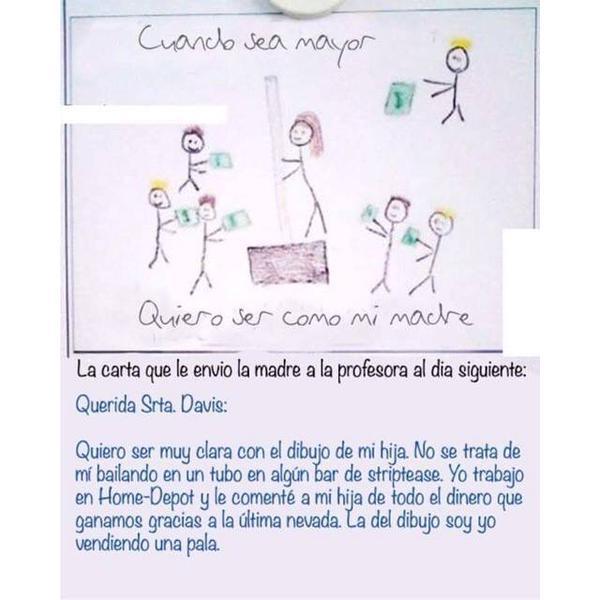 Cuando sea mayor
Quiero ser como mi madre
La carta que le envio la madre a la profesora al dia siguiente:
Querida Srta. Davis:
Quiero ser muy clara con el dibujo de mi hija. No se trata de
mí bailando en un tubo en algún bar de striptease. Yo trabajo
en Home-Depot y le comenté a mi hija de todo el dinero que
ganamos gracias a la última nevada. La del dibujo soy yo
vendiendo una pala.